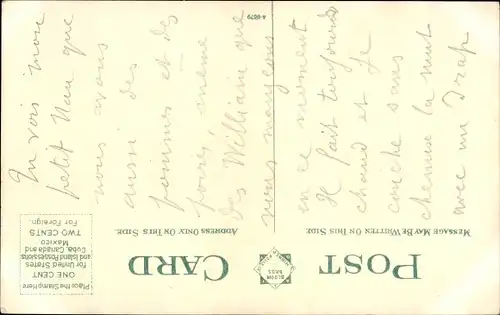 Tu vois mon
petit Nan que
nous avons
aussi des
pommes et des
poires, même
des William que
nous mangeons
en ce moment
Il fait toujours
chaud et Je
couche sans
chemise la nuit
avec un Drap
POST CARD
MESSAGE MAY BE WRITTEN ON THIS SIDE.
ADDRESS ONLY ON THIS SIDE.
Place the Stamp Here
ONE CENT
for United States
and Island Possessions
Cuba, Canada and
Mexico
TWO CENTS
For Foreign.